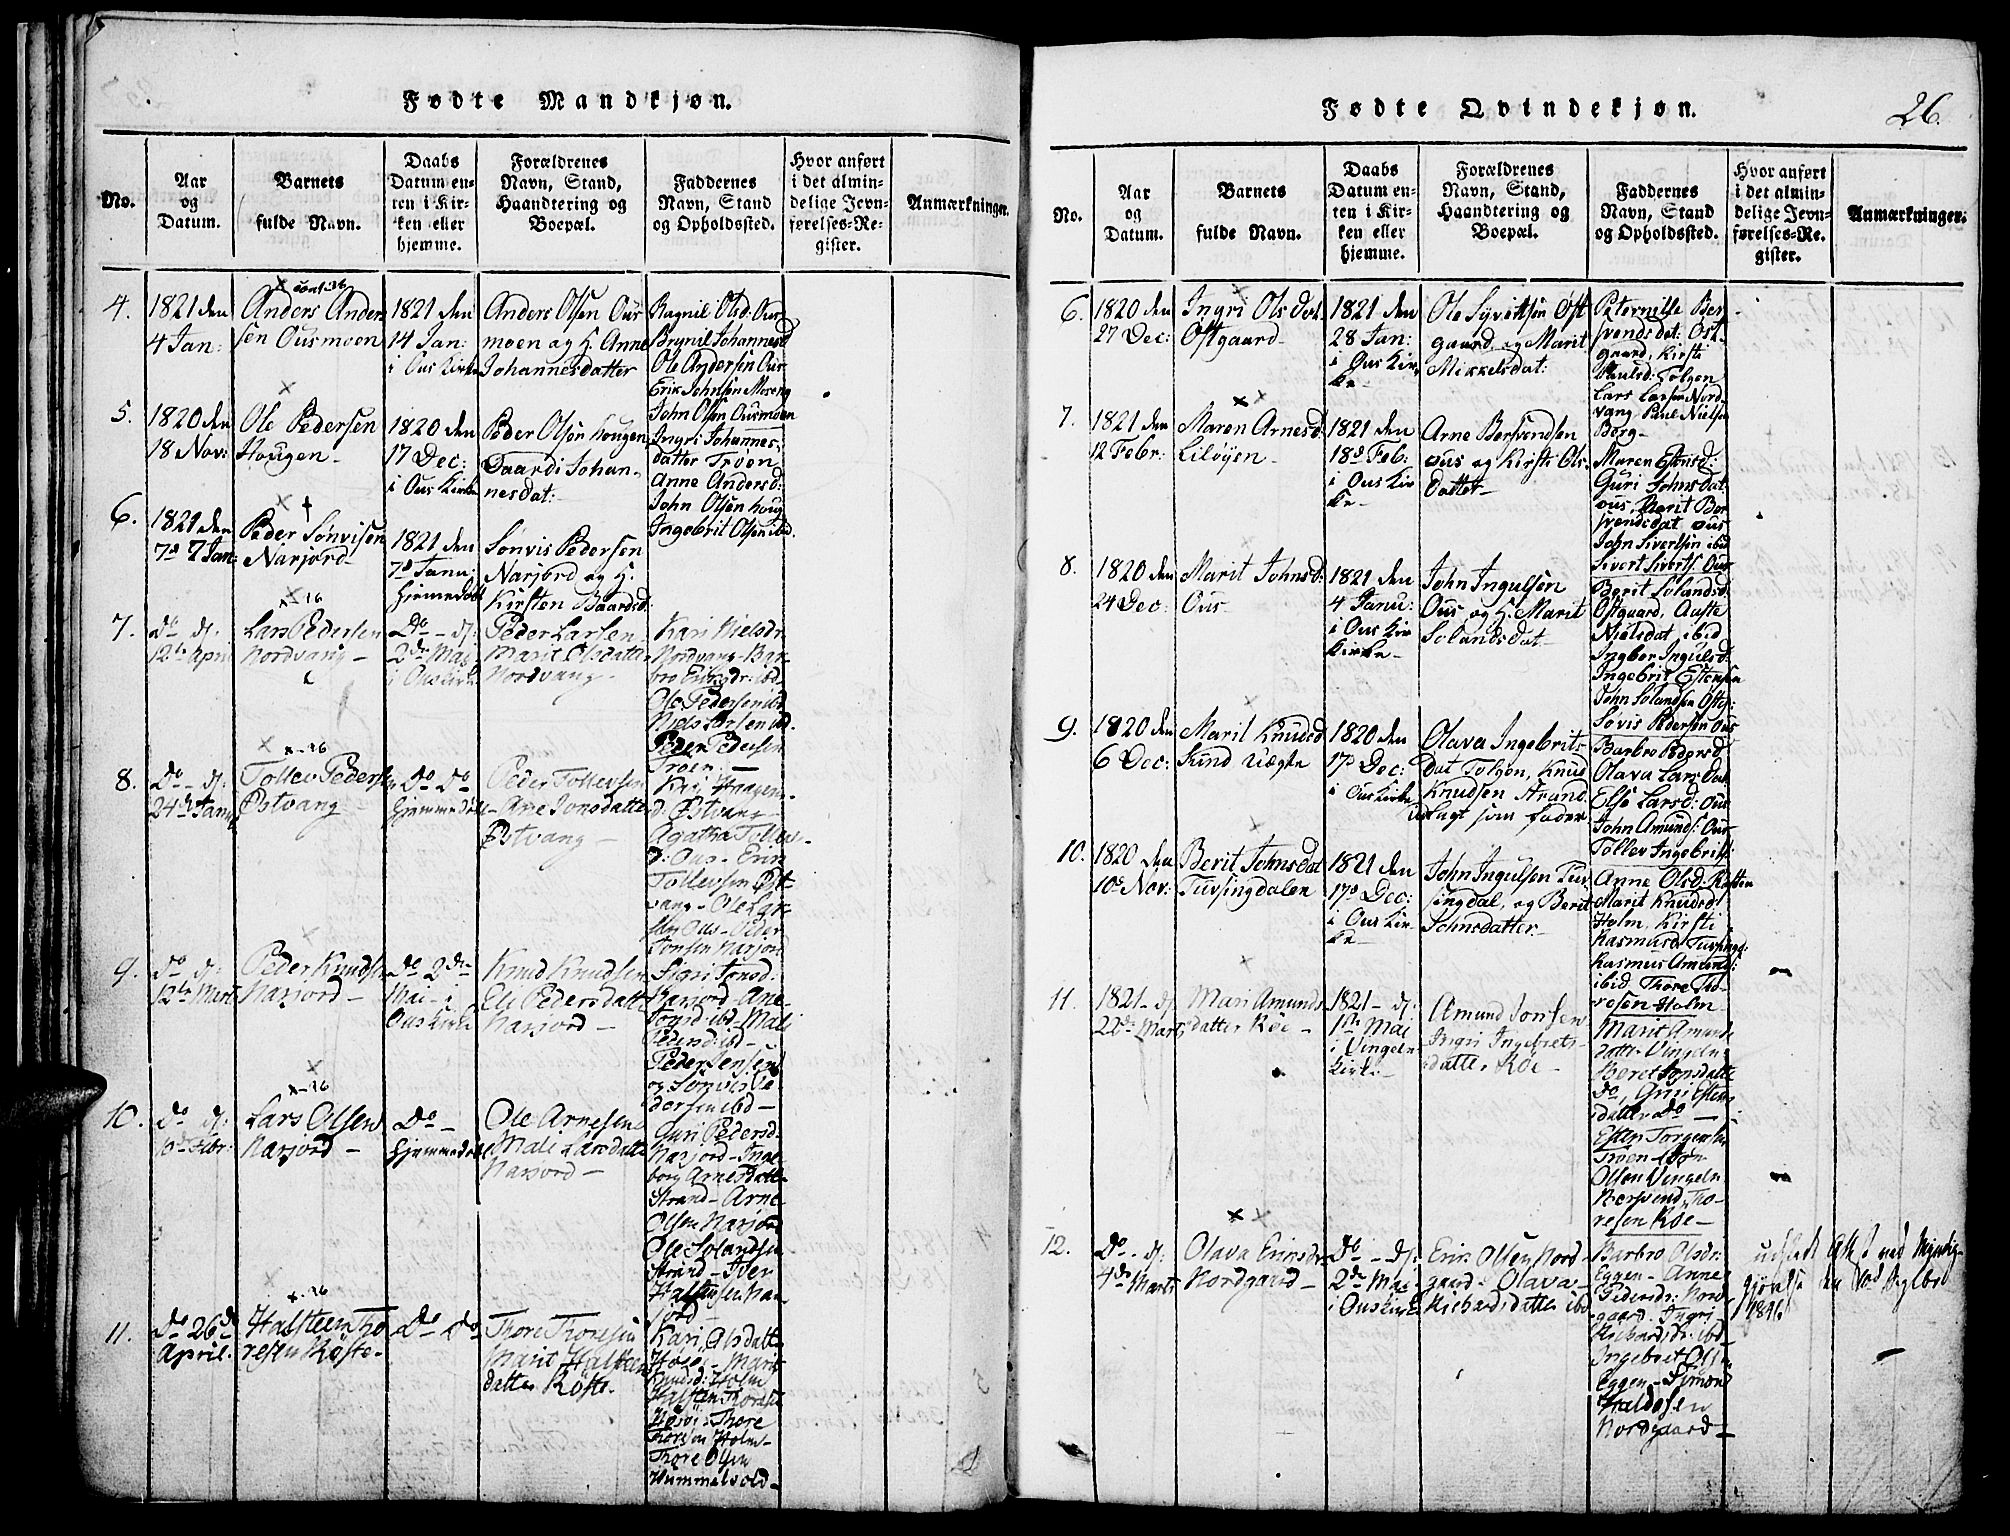 Fødte Mandkjøn.
No.
Aar
og
Datum.
Barnets
fulde Navn.
Daabs
Datum en-
ten i Kir-
ken eller
hjemme.
Forældrenes
Navn, Stand,
Haandtering og
Boepæl.
Faddernes
Navn, Stand
og Opholdssted.
Hvor anført
i det almin-
delige Jevn-
førelses-Re-
gister.
Anmærkninger.
4.
1821 den
4 Jan:
Anders Ander-
sen Ousmoen
1821 den
14 Jan:
i Ous Kirke
Anders Olsen Ous
moen og H. Anne
Johannesdatter
Ragnil Olsd: Ous
Brynil Johannesd
Ole Andersen Ous
Erik Johnsen Moseng
John Olsen Ousmoen
5.
1820 den
18 Nov:
Ole Pedersen
Hougen
1820 den
17 Dec:
i Ous Kirke
Peder Olsen Hougen
Baardi Johan-
nesdat:
Ingri Johannes-
datter Troen
Anne Andersd:
John Olsen Houg
Ingebrit Olsen ibd.
6.
1821 den
7de 7 Jan:
Peder Sønvisen
Narjord
1821 den
7de Janu:
Hjemedøbt
Sønvis Pedersen
Narjord og H.
Kirsten Baardsd:
7.
do dj:
12te April
Lars Pedersen
Nordvang
Do - dj:
2den Mai
i Ous Kirke
Peder Larsen
Marit Olsdatter
Nordvang
Kari Nielsdr
Nordvang - Bar-
bro Eriksdr: ibd
Ole Pedersen ibd
Niels Larsen ibd.
Peder Pedersen
Troen
8.
Do - dj:
24de Janu
Tollev Peders
Østvang
Do Do
Hjemmedøbt
Peder Tollevsen
Ane Jonsdatter
Østvang
Kari Haagen-
d: Østvang
Agatha Tollev-
d: Ous - Erik
Tollevsen Øst-
vang - Ole Lar-
sen Ous - Peder
Jonsen Narjord
9.
do dj:
12te Mart
Peder Knudsen
Narjord
Do 2den
Mai - i
Ous Kirke
Knud Knudsen
Eli Pedersdatter
Narjord
Sigri Jonsd:
Narjord - Ane
Jonsd: ibd - Mali
Pedersd: ibd -
Peder Jensen
og Sønvis Pe
dersen ibd
10.
Do dj:
Febr:
Lars Olsen
Narjord
Do -
Hjemmedøbt
Ole Arnesen
Mali Larsdatter
Narjord
Guri Pedersd-
Narjord - Inge-
borg Arnesdatter
Strand - Arne
Olsen Narjord
Ole Solandsen
Strand - Iver
Halstensen Nar-
jord
11.
Do 26de
April.
Halsteen Tho
resen Røste
Do Do
Thore Thoresen
Marit Halsteen
datter Røste.
Kari Olsdatter
Marit
Knudsd: Holm
Halsten Thoresen
Thore
Thoresen Holm-
Thore Olsen
Hummelvold-
Fødte Qvindekjøn.
26.
No.
Aar
og
Datum.
Barnets
fulde Navn.
Daabs
Datum en-
ten i Kir-
ken eller
hjemme.
Forældrenes
Navn, Stand,
Haandtering og
Boepæl.
Faddernes
Navn, Stand
og Opholdssted.
Hvor anført
i det almin-
delige Jevn-
førelses-Re-
gister.
Anmærkninger.
6.
1820 den
27 Dec:
Ingri Olsdat.
Ostgaard
1821 den
28 Jan:
i Ous Kir-
ke
Ole Syvertsen Øst
gaard og Marit
Mikkelsdat:
Peternille Ber-
svendsdat: Ost-
gaard, Kirsti
Paulsd: Tolgen
Lars Larsen Nord-
vang Paul Nielsen
Borg
7.
1821 den
12 Febr:
Maren Arnesd:
Liløyen
1821 den
18de Feb:
i Ous Kir
ke
Arne Bersvendsen
Ous og Kirsti Ols-
datter
Maren Estensd:
Guri Johnsdat:
Ous, Marit Ber
svendsdat Ous
John Sivertsen ibid
Sivert Siverts: Ous
8.
1820 den
24 Dec:
Marit Johnsd:
Ous
1821 den
4 Janu:
i Ous Kir
kirke
John Ingulsen
Ous og H. Marit
Solandsdat
Berit Solandsd:
Ostgaard, Aaste
Nielsdat, ibid
Ingber Ingulsd:
Ingebrit Estensen
John Solandsen Ostg:
Sovis Pedersen Ous
9.
1820 den
6 Dec:
Marit Knudsd
Sund Uægte
1820 den
17de Dec:
i Ous Kirke
Olava Ingebrits-
dat Tolgen, Knud
Knudsen Strand
udlagt som fader
Barbro Pedersd
Olava Larsdat
Else Larsd: Ous
John Amunds: Ous
Tollev Ingebrits:
10.
1820 den
10de Nov:
Berit Johnsdat
Tufsingdalen
1821 den
17de Dec:
i Ous Kir-
ke
John Ingulsen Tuf-
singdal, og Berit
Johnsdatter
Anne Olsd: Røsten
Marit Knudsd:
Holm, Kirsti
Rasmusd Tufsingd:
Rasmus Amunds:
ibid Thore Tho-
resen Holm
11.
1821 - dj:
22de Marts
Mari Amunds
datter Røe
1821 - dj:
1ste Mai
i Vingeln
Kirke
Amund Jonsen
Ingri Ingebrets-
datter Røe
Marit Amunds
datter Vingeln
Beret Jonsdatter
do, Guri Esten
datter do
Esten Torgersen
Troen - Jon
Olsen Vingeln
Bersvend Tho-
resen Røe
12.
Do - dj:
4de Marts
Olava Eriksdr
Nordgaard
Do - dj:
2de Mai
i Ous Kirke
Erik Olsen Nord-
gaard - Olava
Richardsdatter ibd
Barbro Olsdr:
Eggen - Anne
Pedersdr: Nord-
gaard. Ingri
Richardsdr: ibd
Ingebret Olsen
Eggen - Simon
Haldosen
Nordgaard
udstedt Attest
1846